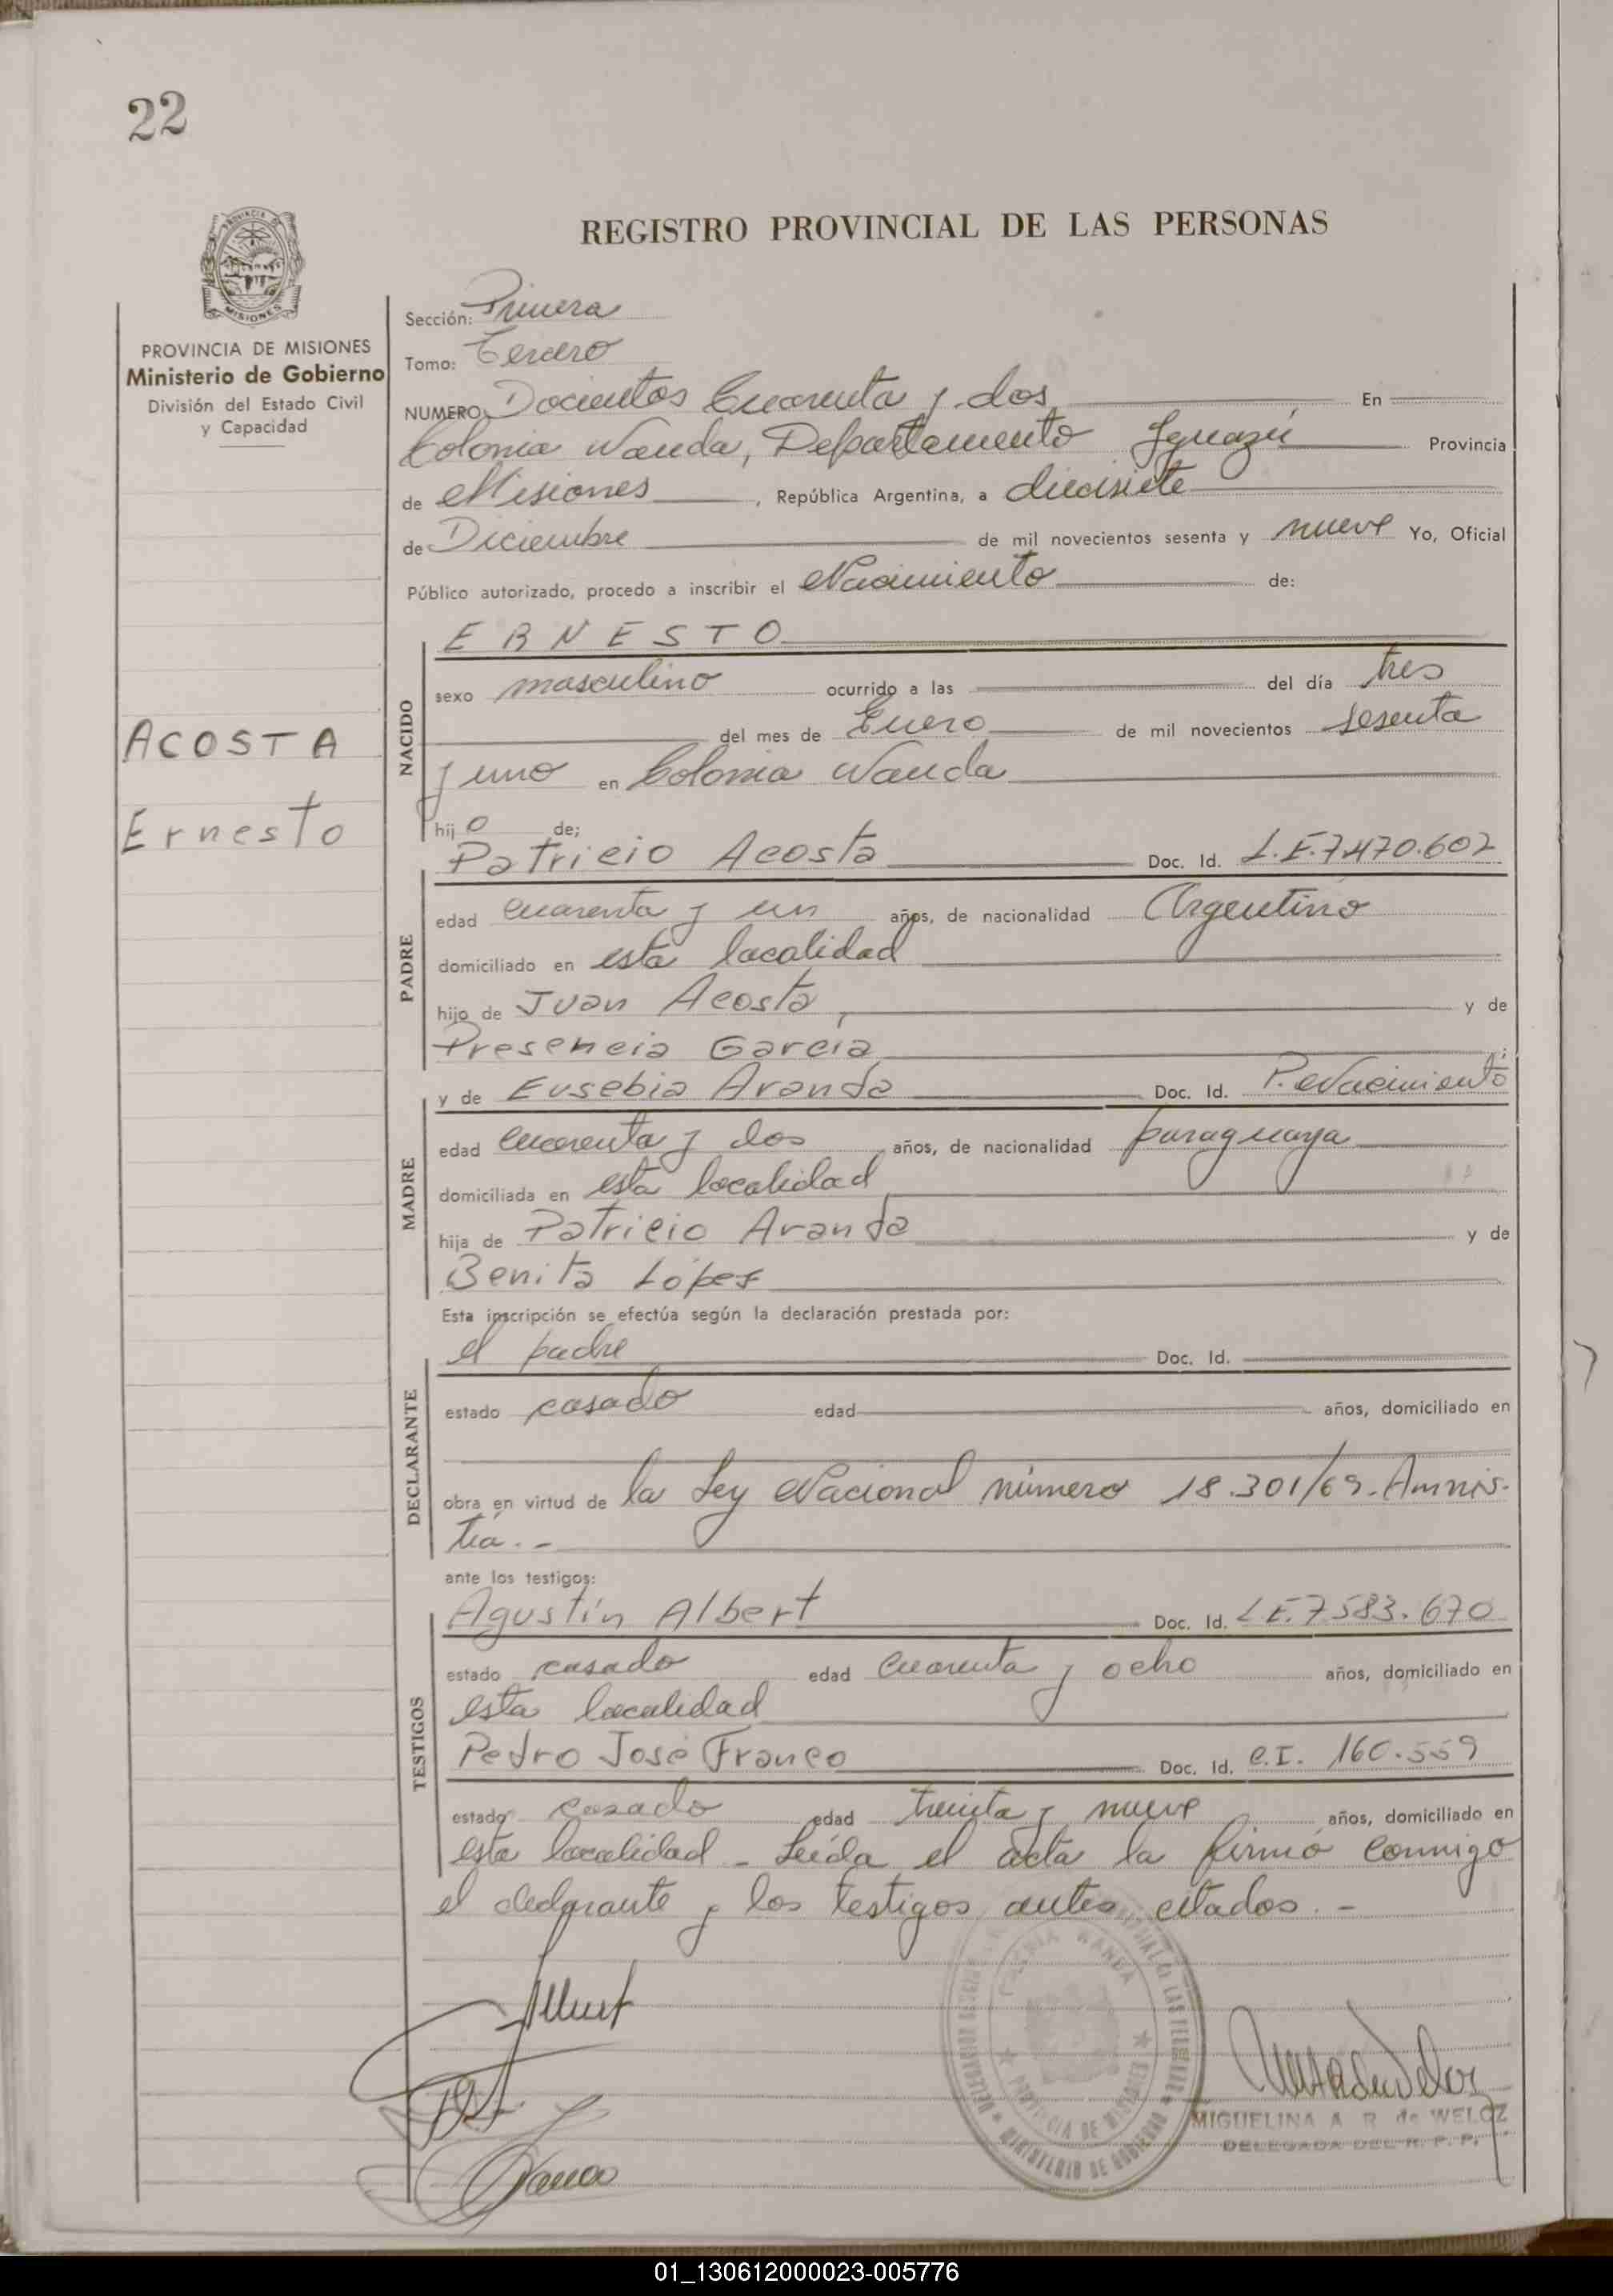 22
REGISTRO PROVINCIAL DE LAS PERSONAS
PROVINCIA DE MISIONES
Ministerio de Gobierno
División del Estado Civil
y Capacidad
ACOSTA
Ernesto
Sección: Primera
Tomo: Tercero
NUMERO Docientos Cuarenta y dos En
Colonia Wanda, Departamento Iguazú Provincia
de Misiones, República Argentina, a diecisiete
de Diciembre de mil novecientos sesenta y nueve Yo, Oficial
Público autorizado, procedo a inscribir el Nacimiento de:
NACIDO
ERNESTO
sexo masculino ocurrido a las del día tres
del mes de Enero de mil novecientos sesenta
y uno en Colonia Wanda
hijo de;
PADRE
Patricio Acosta Doc. Id. L.E.7.470.602
edad cuarenta y un años, de nacionalidad Argentino
domiciliado en esta localidad
hijo de Juan Acosta, y de
Presencia García
MADRE
y de Eusebia Aranda Doc. Id. P. Nacimiento
edad cuarenta y dos años, de nacionalidad paraguaya
domiciliada en esta localidad
hija de Patricio Aranda y de
Benita López
Esta inscripción se efectúa según la declaración prestada por:
DECLARANTE
el padre Doc. Id.
estado casado edad años, domiciliado en
obra en virtud de la Ley Nacional número 18.301/69. Amnis-
tía.-
ante los testigos:
TESTIGOS
Agustín Albert Doc. Id. L.E.7583.670
estado casado edad cuarenta y ocho años, domiciliado en
esta localidad
Pedro José Franco Doc. Id. C.I. 160.559
estado casado edad treinta y nueve años, domiciliado en
esta localidad - Leída el acta la firmó conmigo
el declarante y los testigos antes citados.-
Albert
Franco
COLONIA WANDA
PROVINCIA DE MISIONES
MINISTERIO DE GOBIERNO
MIGUELINA A. R. de WELOZ
DELEGADA DEL R. P. P.
01_130612000023-005776